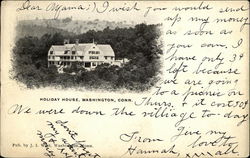 Dear Mama: I wish you would send
up my money
as soon as
you can. I
have only 34
left because
we are going
to a picnic on
HOLIDAY HOUSE, WASHINGTON, CONN.
Thurs. + it cost 30¢
We were down the village to-day
Give my
love to
From
Hannah
Pub. by J. I.